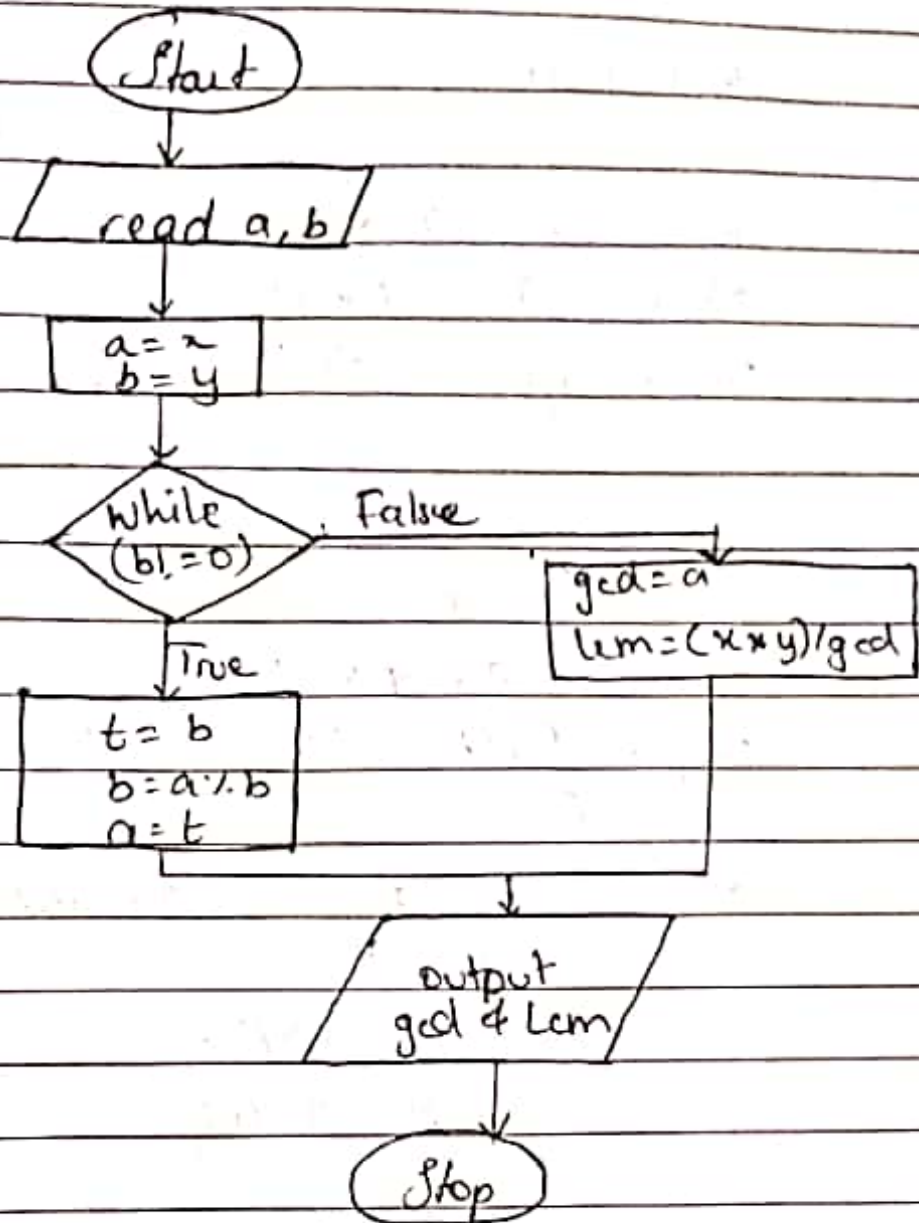 Start
read a, b
a = x
b = y
while
(b! = 0)
False
gcd = a
lcm = (x * y) / gcd
True
t = b
b = a % b
a = t
output
gcd & Lcm
Stop